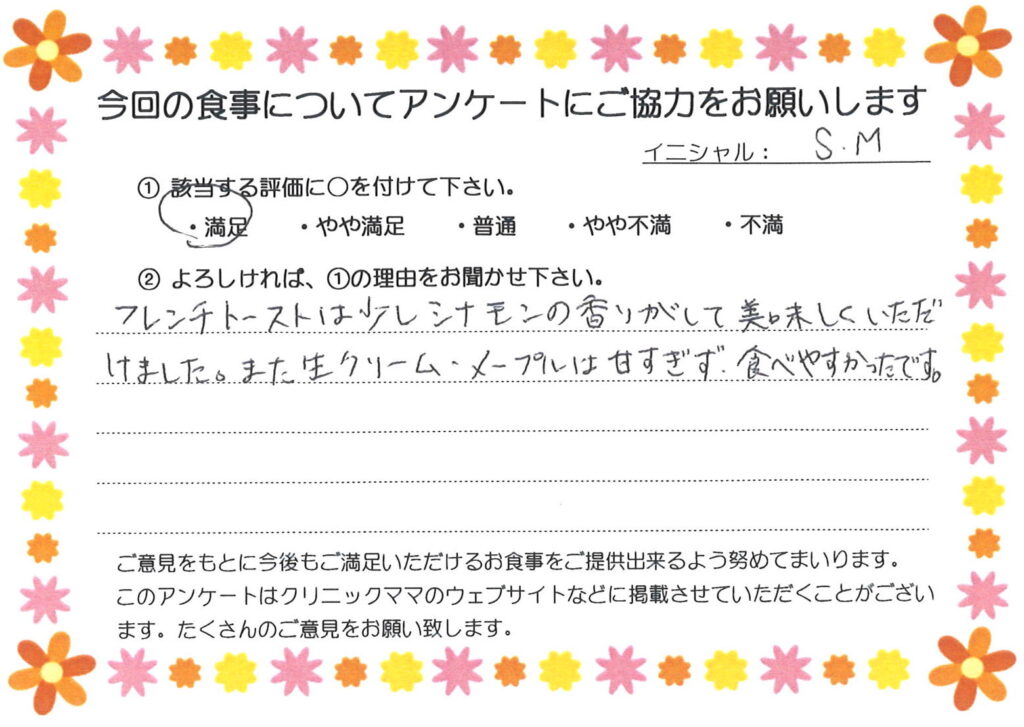 今回の食事についてアンケートにご協力をお願いします
イニシャル： S.M
① 該当する評価に○を付けて下さい。
・満足 ・やや満足 ・普通 ・やや不満 ・不満
② よろしければ、①の理由をお聞かせ下さい。
フレンチトーストは少しシナモンの香りがして美味しくいただ
けました。また生クリーム・メープルは甘すぎず、食べやすかったです。
ご意見をもとに今後もご満足いただけるお食事をご提供出来るよう努めてまいります。
このアンケートはクリニックママのウェブサイトなどに掲載させていただくことがござい
ます。たくさんのご意見をお願い致します。